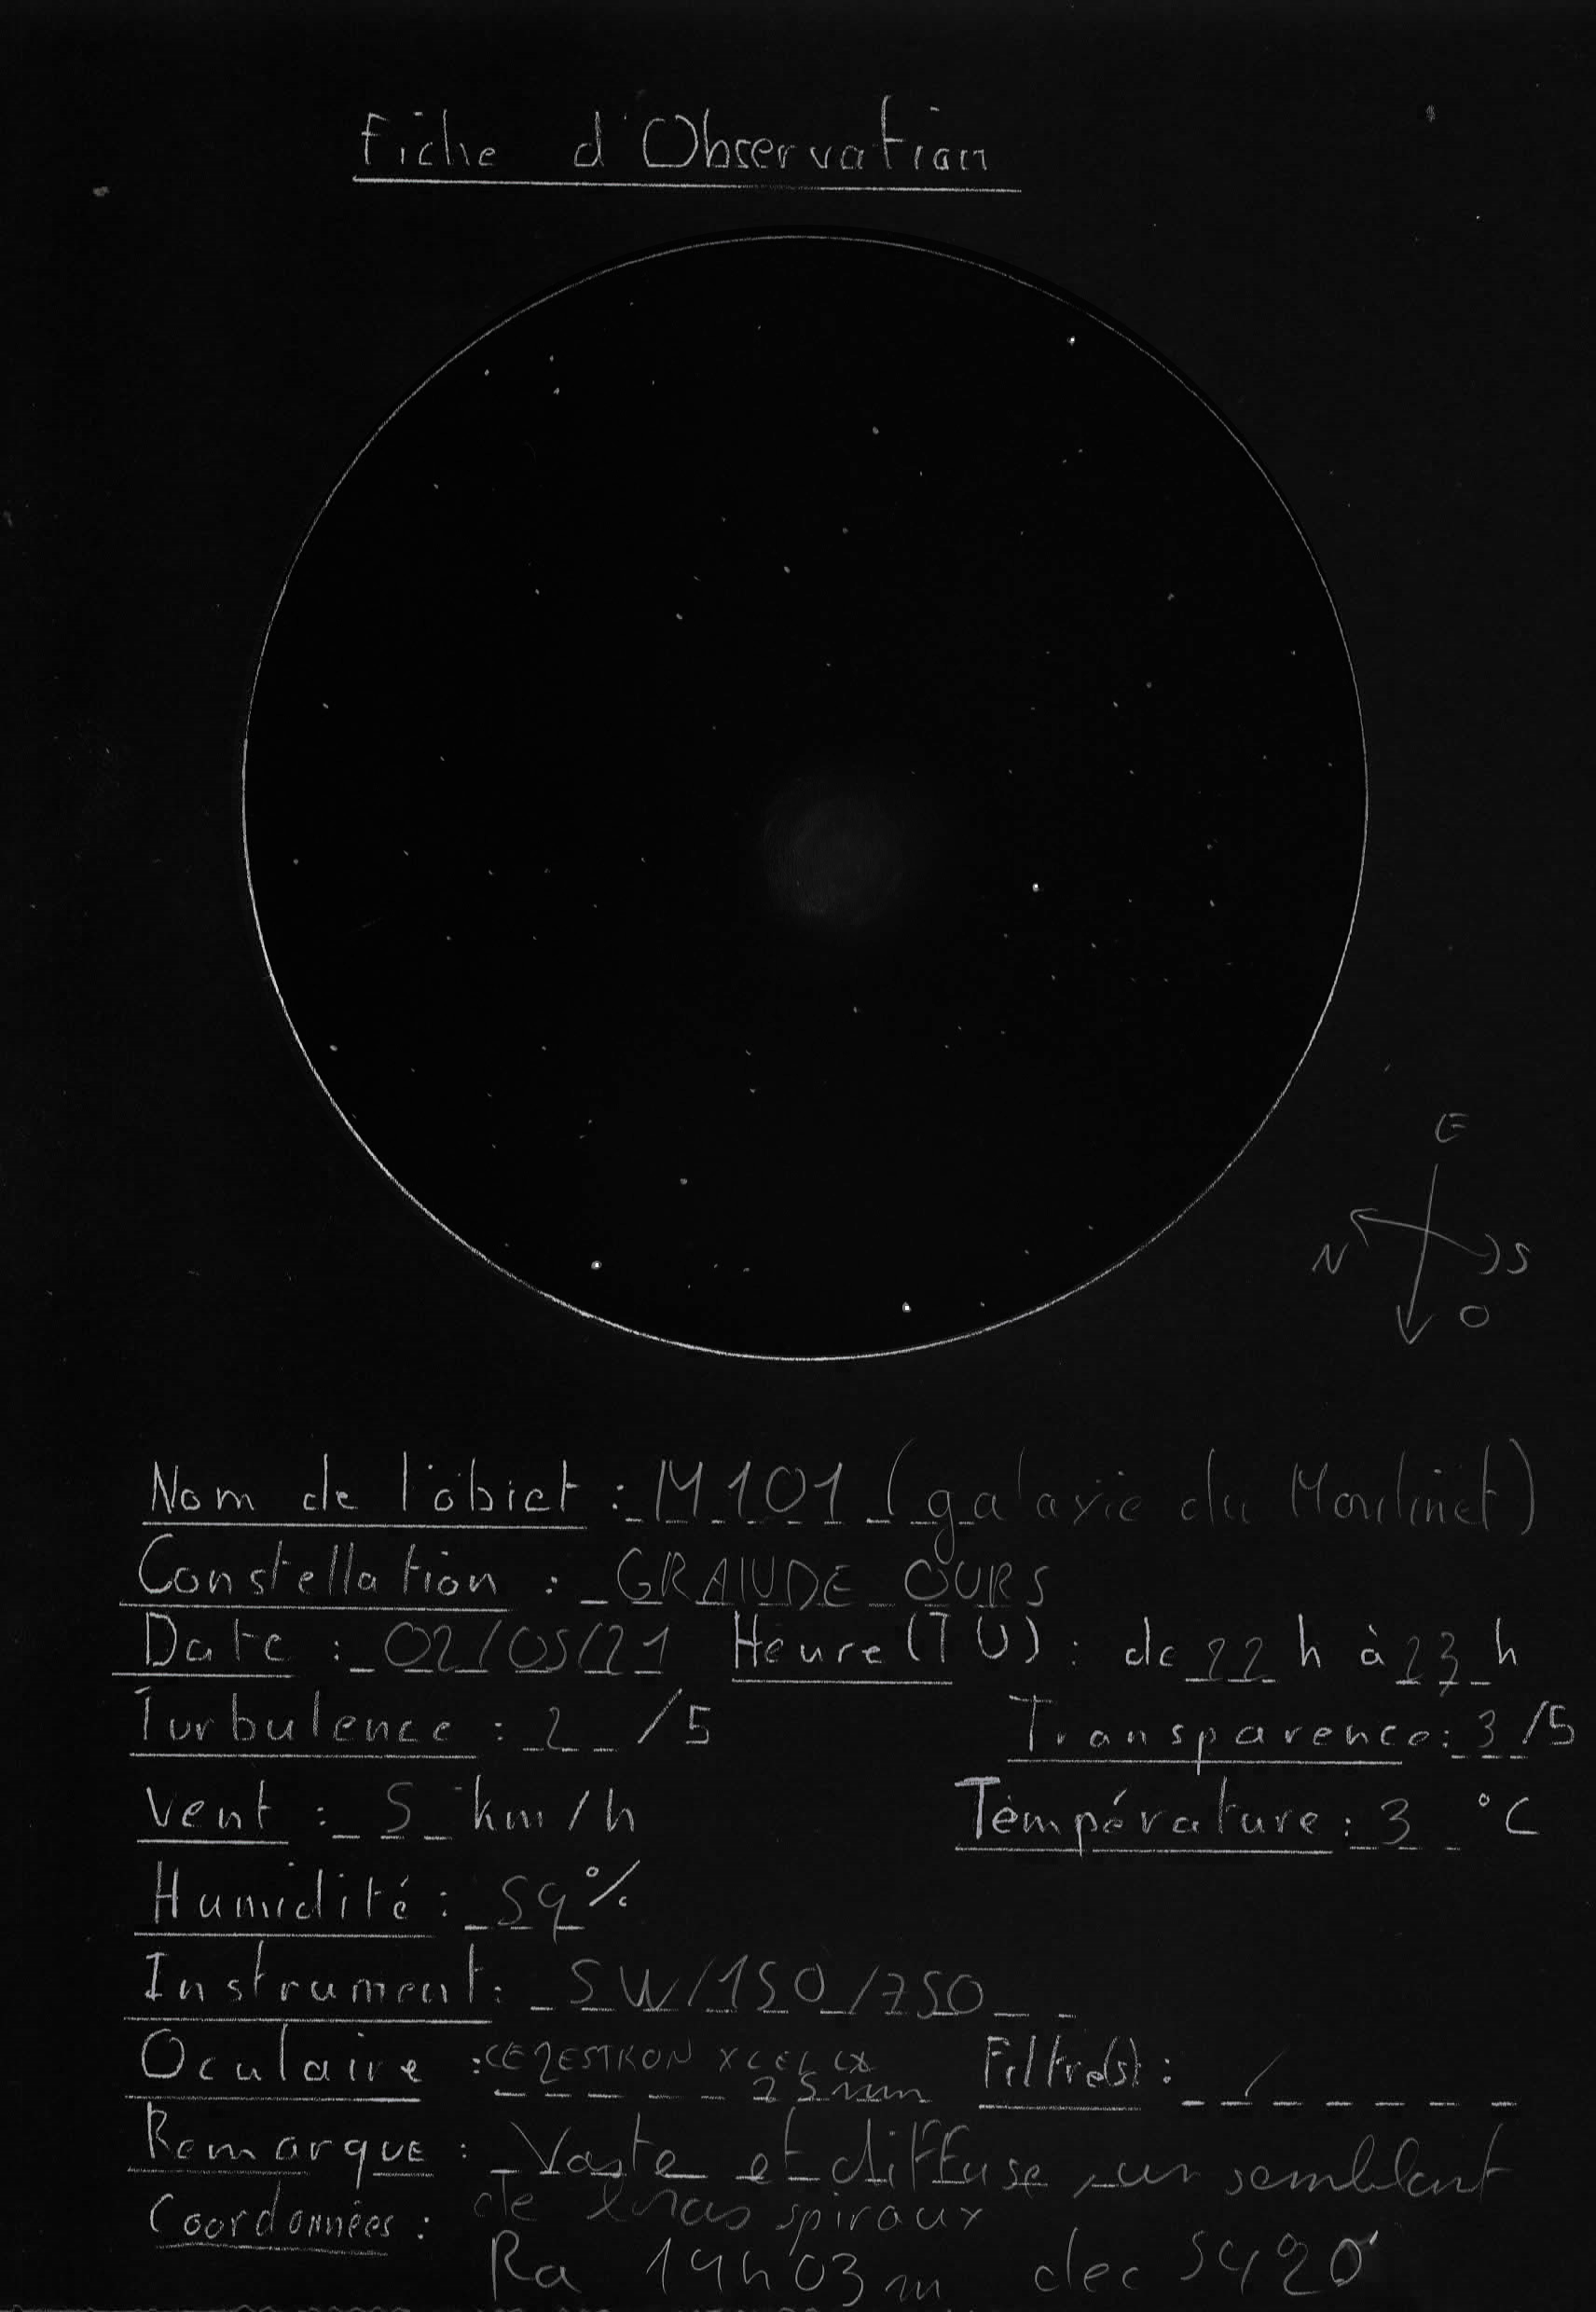 Fiche d'Observation
E
N S
O
Nom de l'objet : M101 (galaxie du Moulinet)
Constellation : GRANDE OURS
Date : 02/05/21 Heure (TU) : de 22 h à 23 h
Turbulence : 2 /5 Transparence : 3 /5
Vent : 5 km/h Température : 3 °C
Humidité : 59 %
Instrument : SW/150/750
Oculaire : CELESTRON X CEL LX Filtre(s) : /
25mm
Remarque : Vaste et diffuse, un semblant
de bras spiraux
Coordonnées :
Ra 14h03m dec 5420'